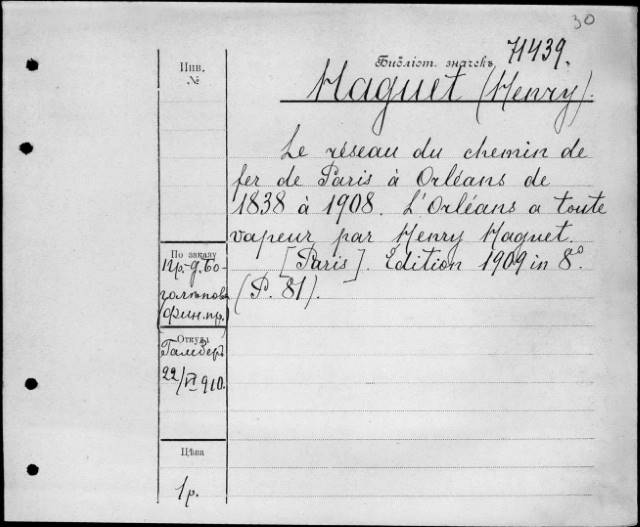 30
Инв.
№
Библіот. значекъ 71439.
Haguet (Henry).
Le réseau du chemin de
fer de Paris à Orléans de
1838 à 1908. L'Orléans a toute
vapeur par Henry Haguet.
[Paris]. Edition 1909 in 8º
(P. 81).
По заказу
Пр.-д. Бо-
голѣпов
(фин. пр.)
Откуда
Гамбер
22/VI 910.
Цѣна
1 р.